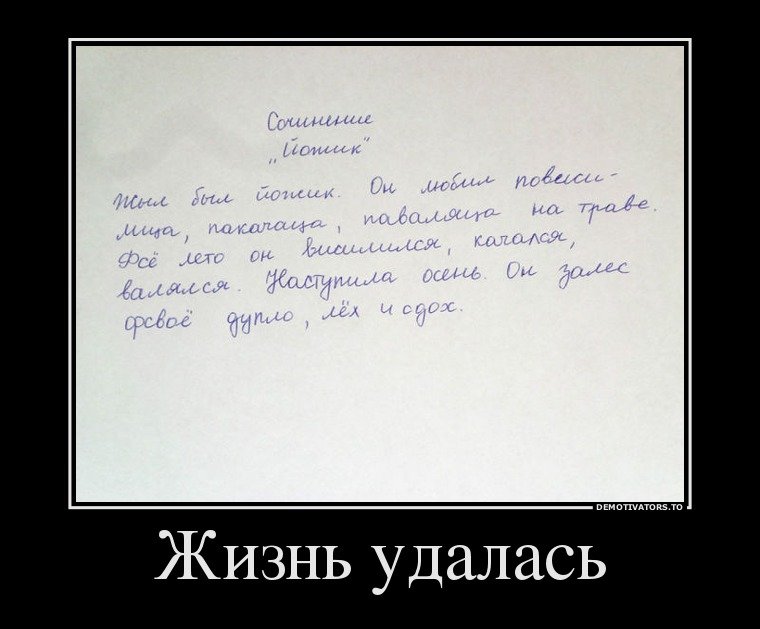 Сочинение
„Йожик"
Жыл был йожик. Он любил повеси-
лица, пакачаца, паваляца на траве.
Фсё лето он висилился, качался,
валялся. Наступила осень. Он залес
фсвоё дупло, лёх и сдох.
DEMOTIVATORS.TO
Жизнь удалась